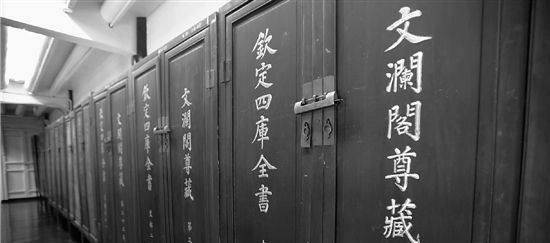 文瀾閣尊藏
欽定四庫全書
文瀾閣尊藏
欽定四庫全書
文瀾閣